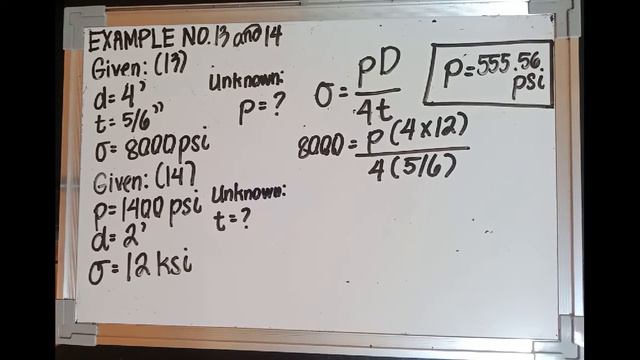 EXAMPLE NO. 13 and 14
Given: (13)
d= 4'
t= 5/6"
σ= 8000 psi
Unknown:
p= ?
σ= pD/4t
8000 = p(4x12)/4(5/6)
p= 555.56 psi
Given: (14)
p= 1400 psi
d= 2'
σ= 12 ksi
Unknown:
t= ?